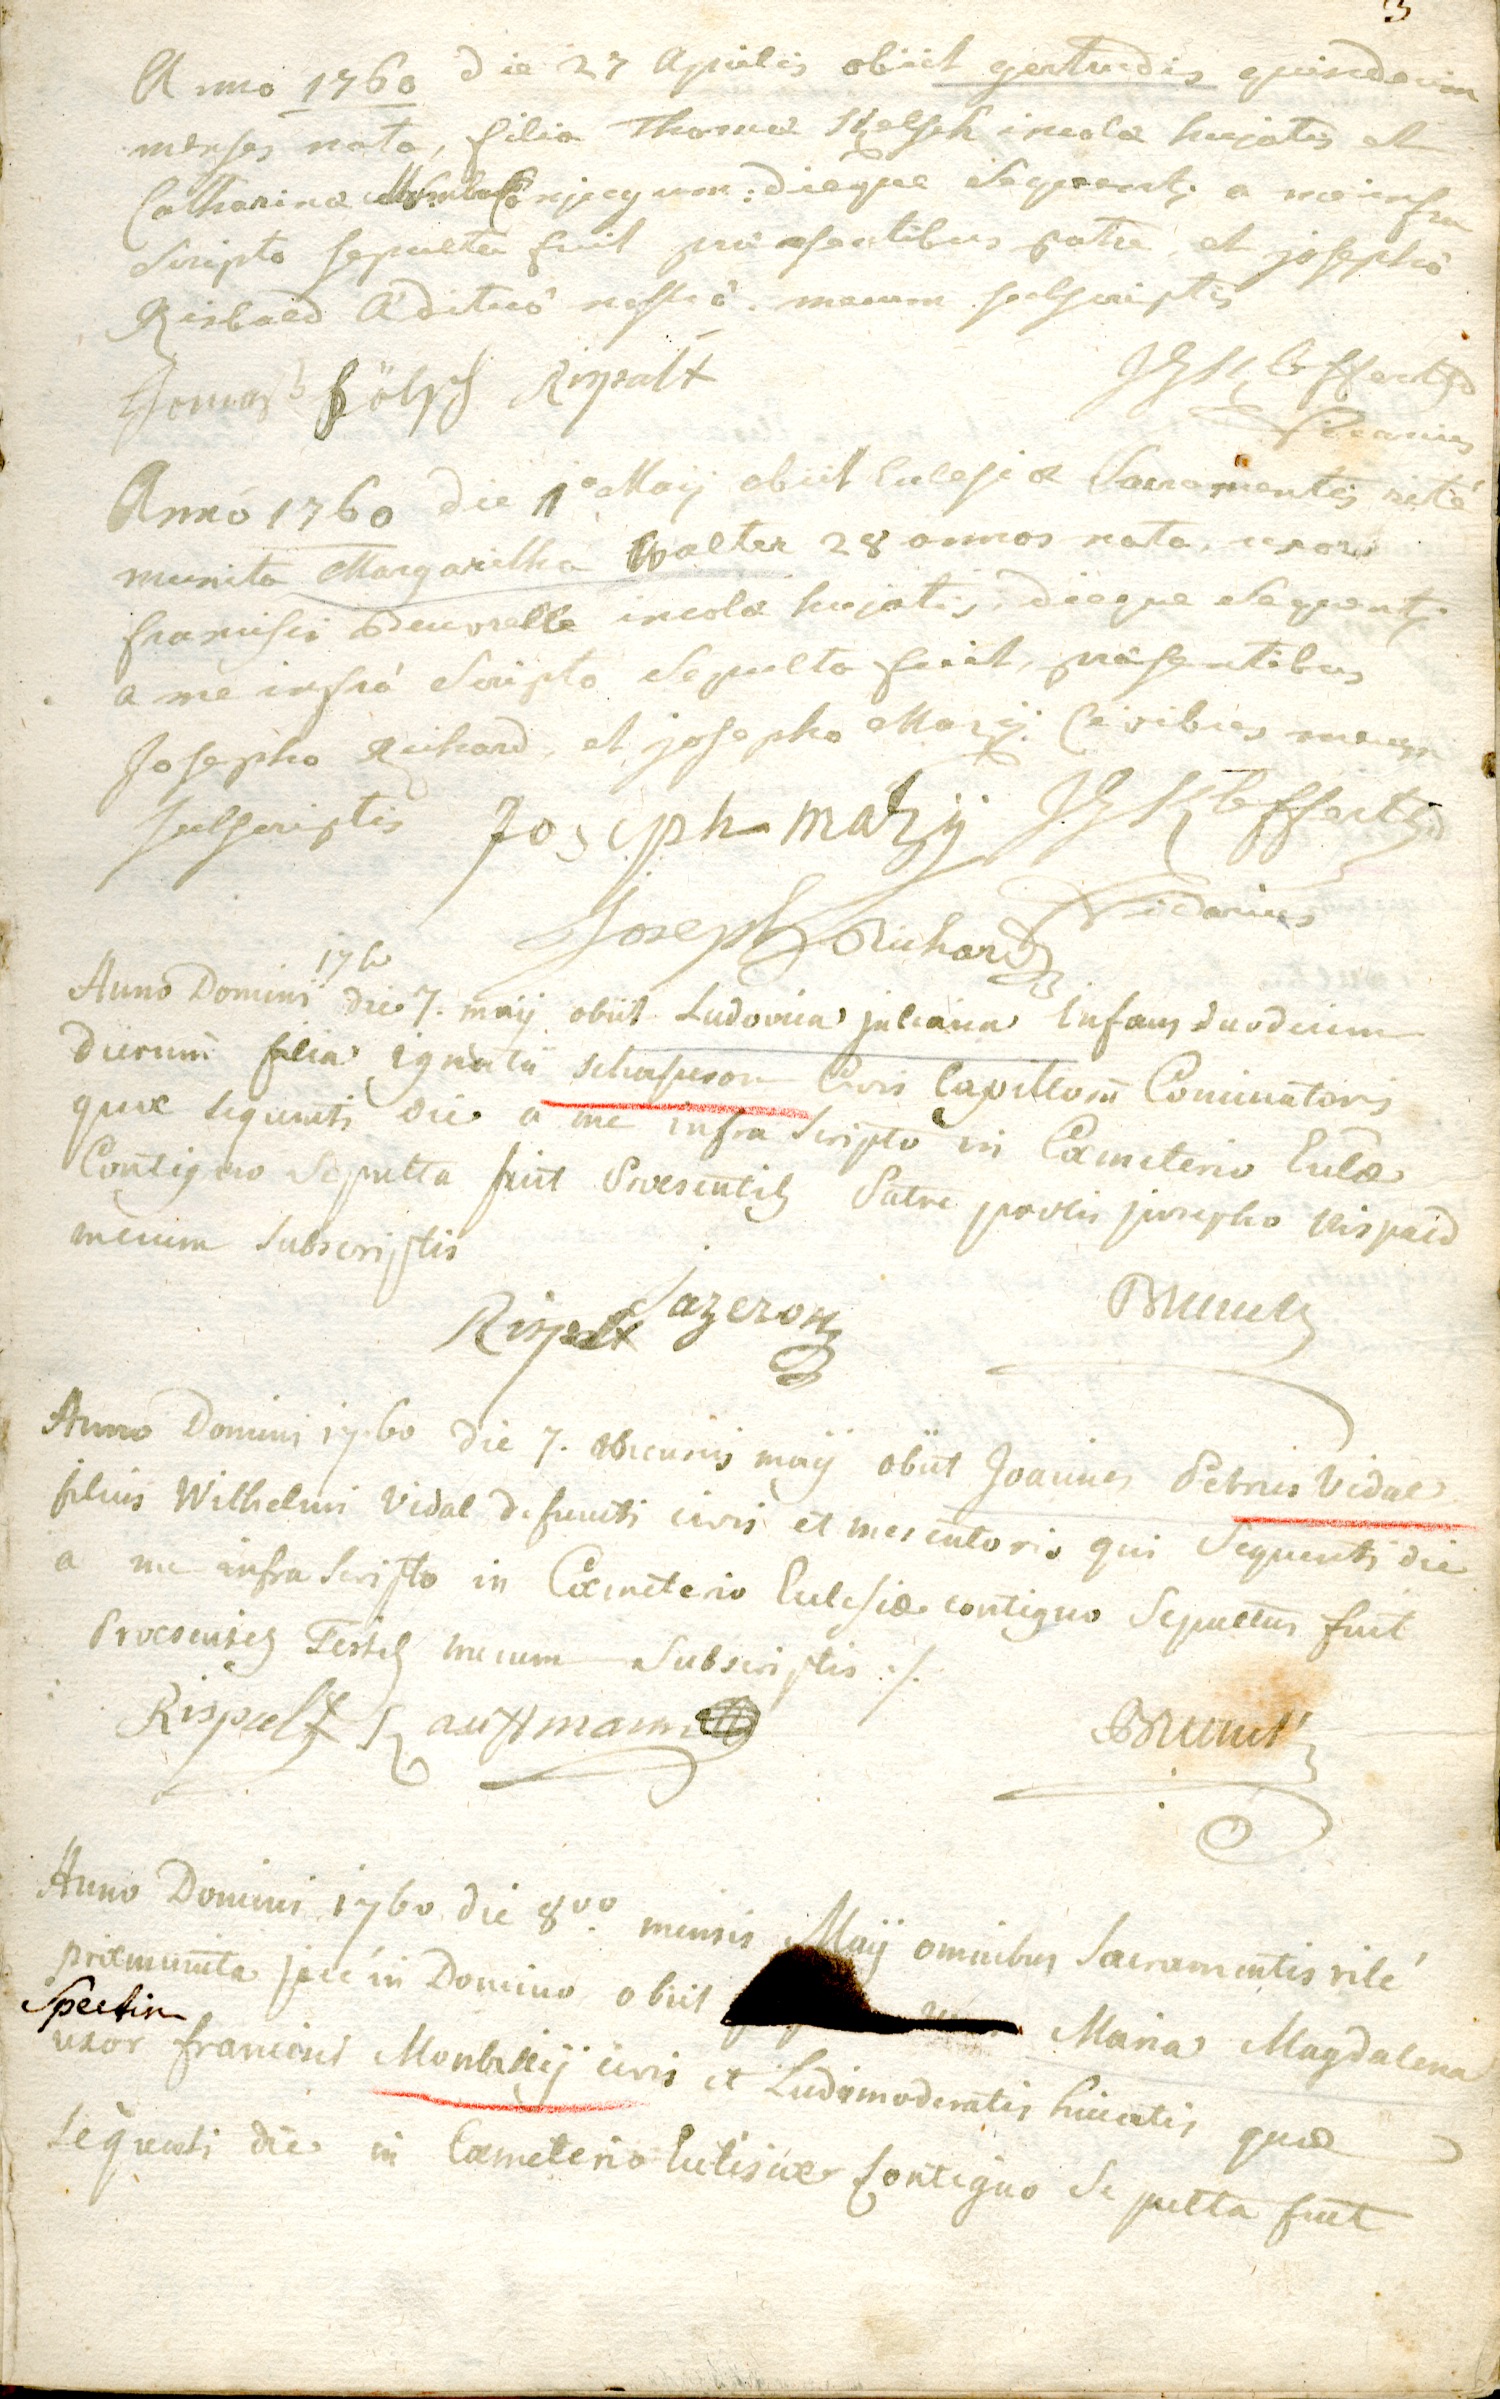 3
Anno 1760 die 27 Aprilis obiit gertrudis quindecim
menses nata, filia Thomæ Kelsch incolæ hujatis et
Catharinæ Conjugum: dieque sequenti a me infra
scripto sepulta fuit præsentibus patre et josepho
Risbald Ædituó nostró mecum subscriptis
Rispalt
Vicarius
Annó 1760 die 1° Maij obiit Eclesiæ Sacramentis rité
munita Margaritha Walter 28 annos nata, uxor
francisci incolæ hujatis, dieque sequenti
a me infrá scripto sepulta fuit, præsentibus
Josepho Richard, et josepho Mazij Civibus mecum
subscriptis Joseph Mazij
Vicarius
Joseph Richard
1760
Anno Domini die 7. maij obiit Ludovica juliana Infans duodecim
dierum filia ignatii schaseron Civis Capillorū Concinnatoris
quæ sequenti die a me infra scripto in Cœmeterio Eclæ
Contiguo Sepulta fuit Præsentib Patre prolis josepho Rispald
mecum subscriptis
Rispalt Sazeron
Anno Domini 1760 die 7. mensis maij obiit Joannes Petrus Vidal
filius Wilhelmi Vidal defuncti civis et mercatoris qui Sequenti die
a me infra Scripto in Cœmeterio Eclesiæ contiguo Sepultus fuit
Præsentib Testib mecum Subscriptis ./.
Rispalt Kauffmann
Anno Domini 1760 die 8vo. mensis Maij omnibus Sacramentis rité
præmunita pié in Domino obiit Maria Magdalena
Spectin
uxor francisci civis et Ludimoderatis huiatis quæ
sequenti die in Cœmeterio Eclesiæ Contiguo Sepulta fuit